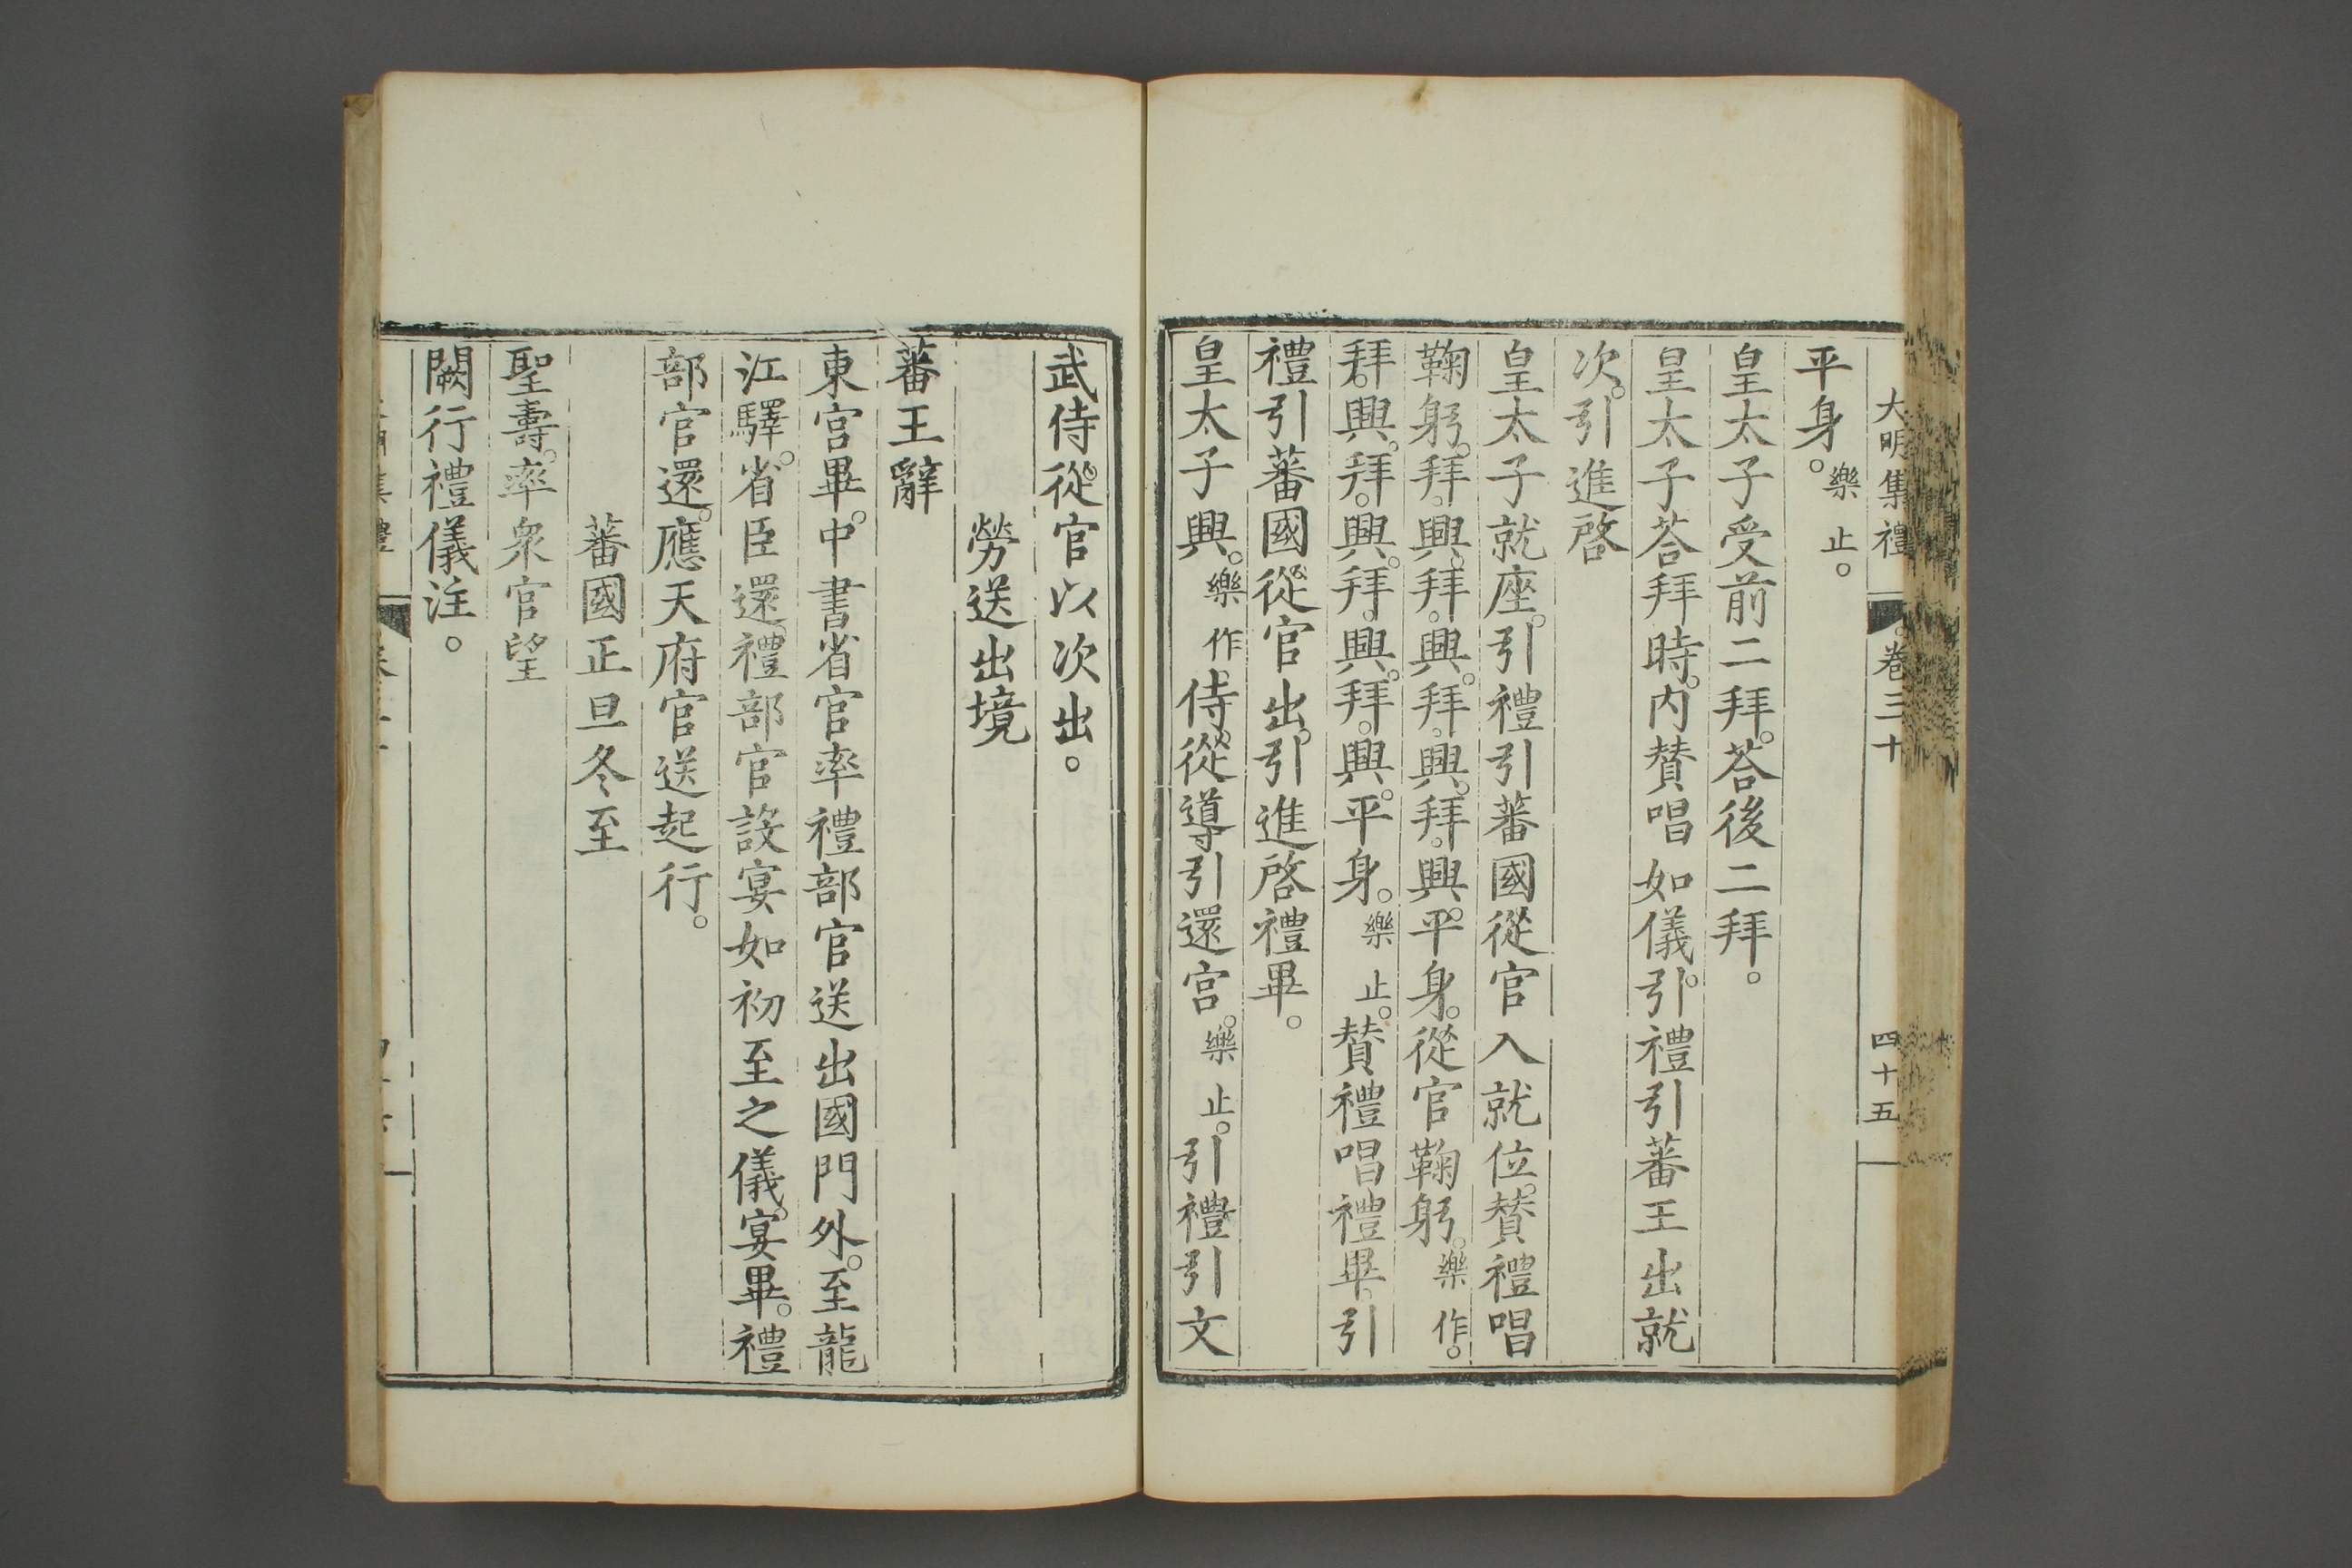 大明集禮 卷三十 四十五
平身。樂止。
皇太子受前二拜。荅後二拜。
皇太子荅拜時。内賛唱如儀。引禮引蕃王出就
次。引進啓
皇太子就座。引禮引蕃國從官入就位。賛禮唱
鞠躬。拜。興。拜。興。拜。興。拜。興。平身。從官鞠躬。樂作。
拜。興。拜。興。拜。興。拜。興。平身。樂止。賛禮唱禮畢。引
禮引蕃國從官出。引進啓禮畢。
皇太子興。樂作。侍從導引還宫。樂止。引禮引文
武侍從官以次出。
勞送出境
蕃王辭
東宫畢。中書省官率禮部官送出國門外。至龍
江驛。省臣還。禮部官設宴如初至之儀。宴畢。禮
部官還。應天府官送起行。
蕃國正旦冬至
聖壽。率衆官望
闕行禮儀注。